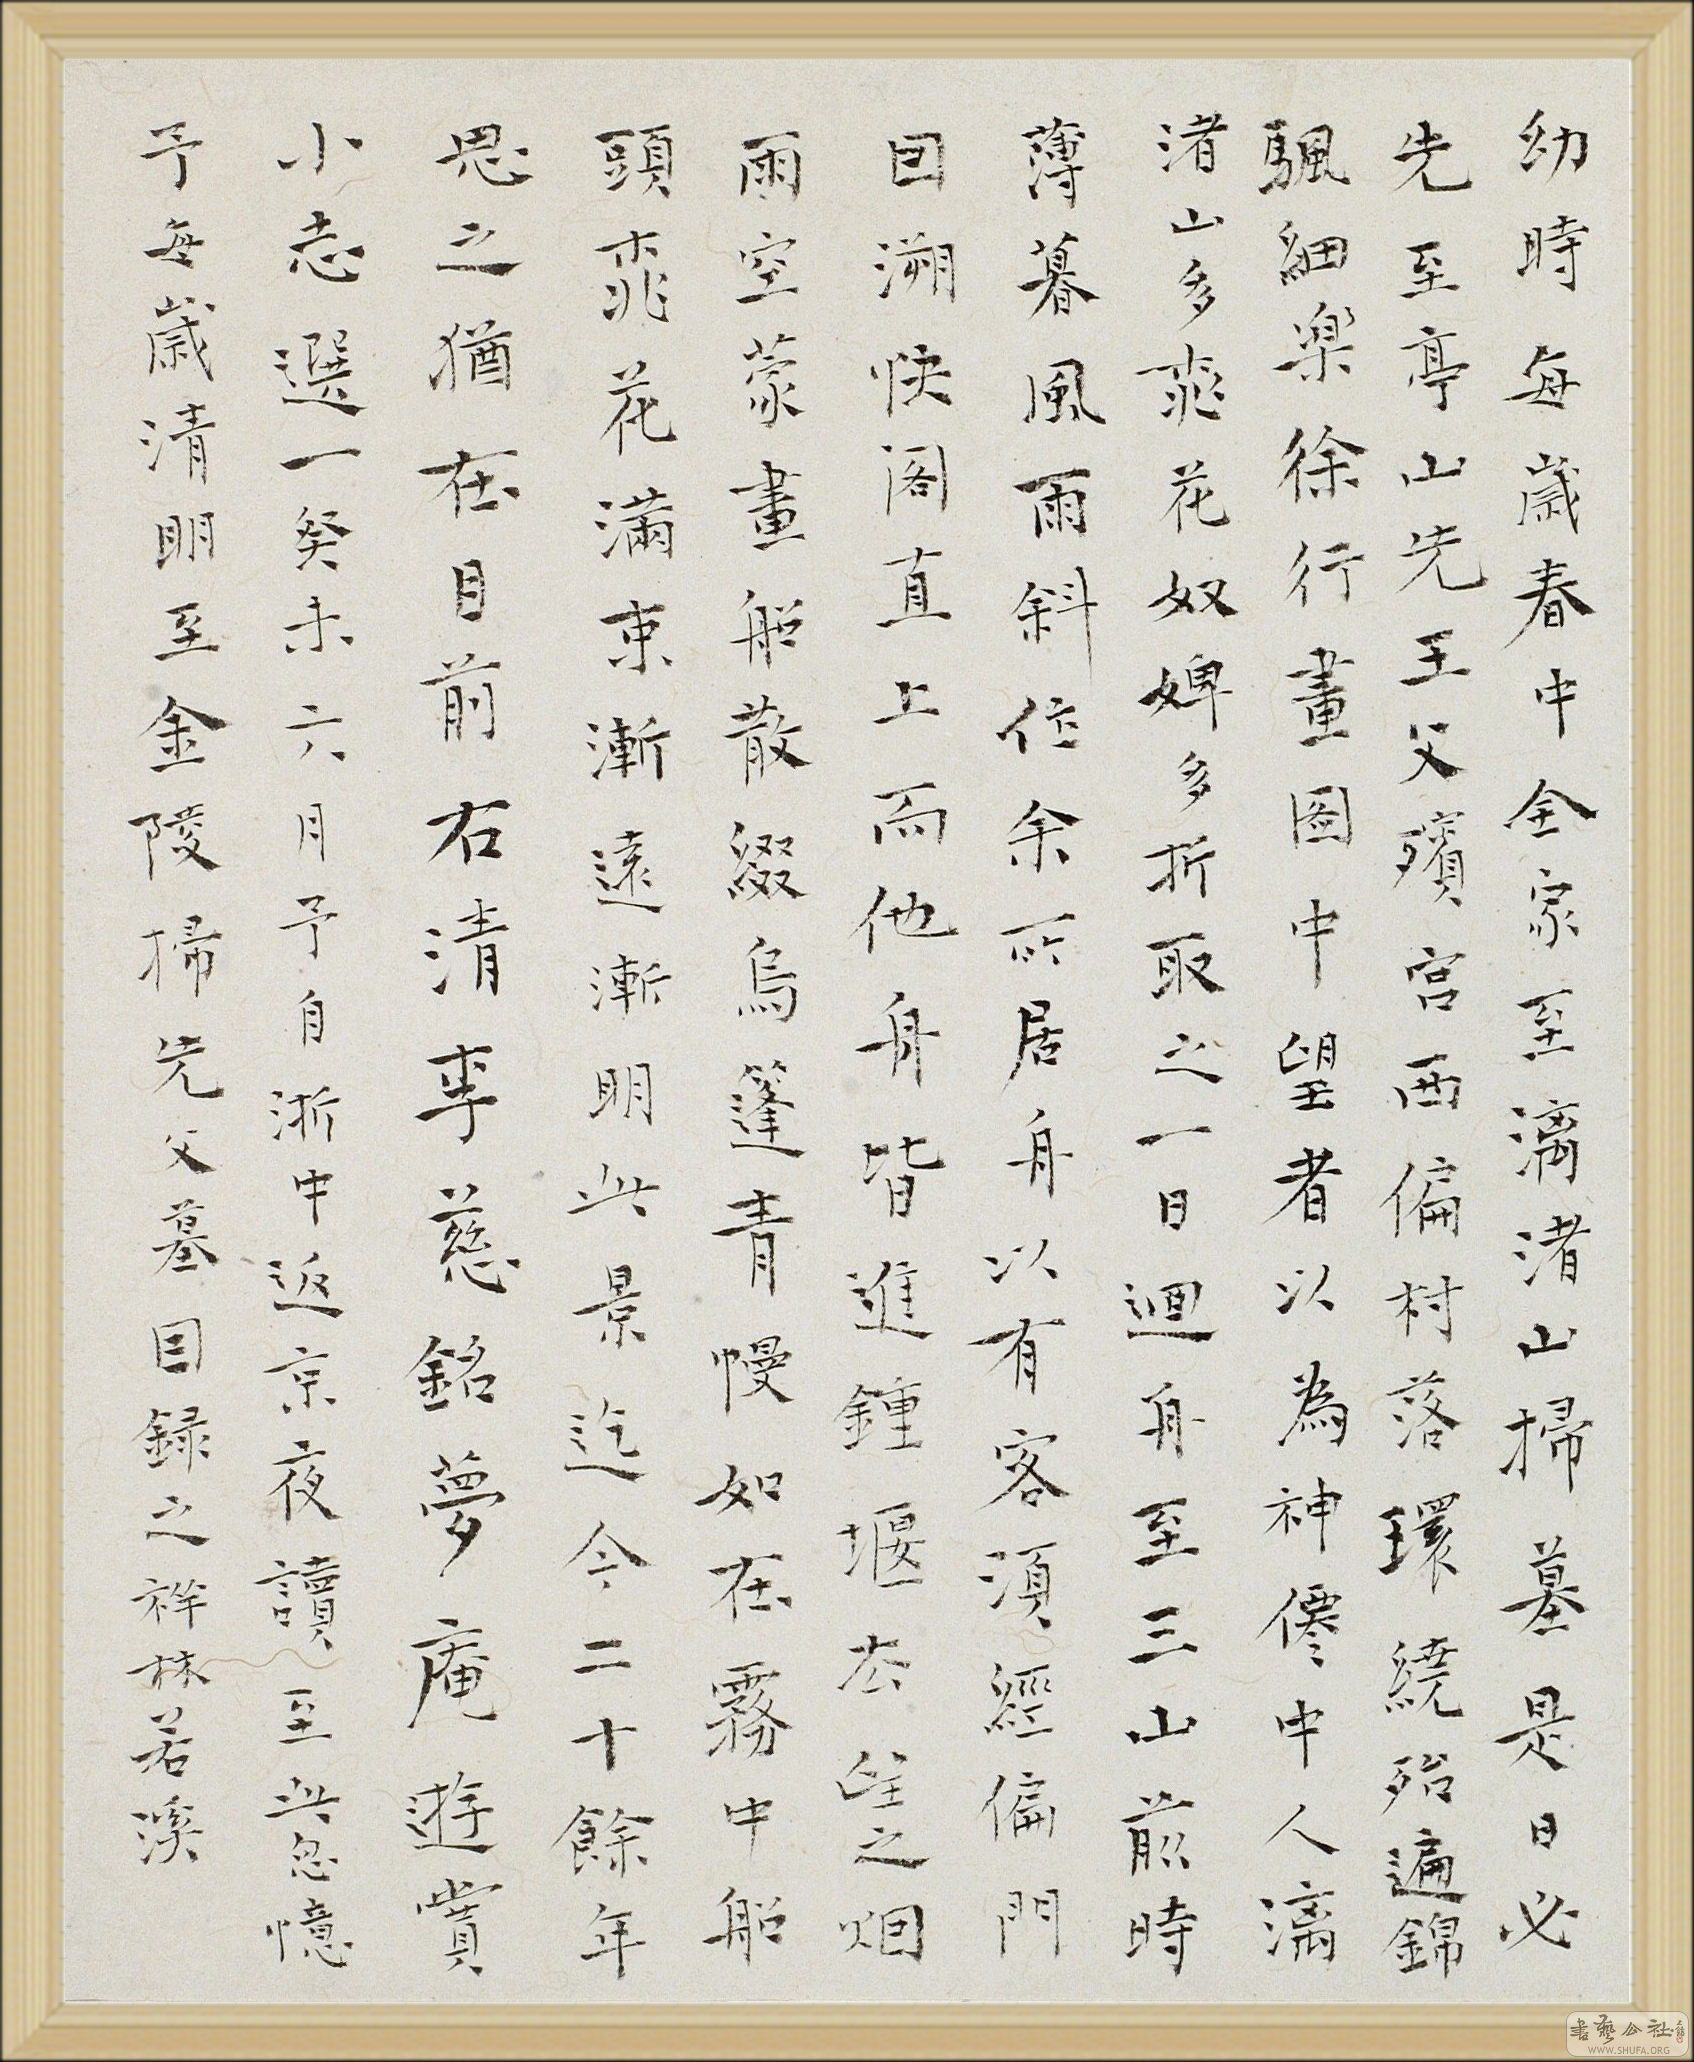 幼時每歲春中全家至漓渚山掃墓是日必
先至亭山先王父殯宮西偏村落環繞殆遍錦
颿細樂徐行畫圖中望者以為神僊中人漓
渚山多桃花奴婢多折取之一日迴舟至三山前時
薄暮風雨斜作余所居舟以有客須經偏門
因溯快阁直上而他舟皆進鍾堰去望之烟
雨空蒙畫船散綴烏篷青幔如在霧中船
頭桃花滿束漸遠漸明此景迄今二十餘年
思之猶在目前右清李慈銘夢庵遊賞
小志選一癸未六月予自浙中返京夜讀至此忽憶
予每歲清明至金陵掃先父墓因録之祥林若溪
書藝公社
WWW.SHUFA.ORG